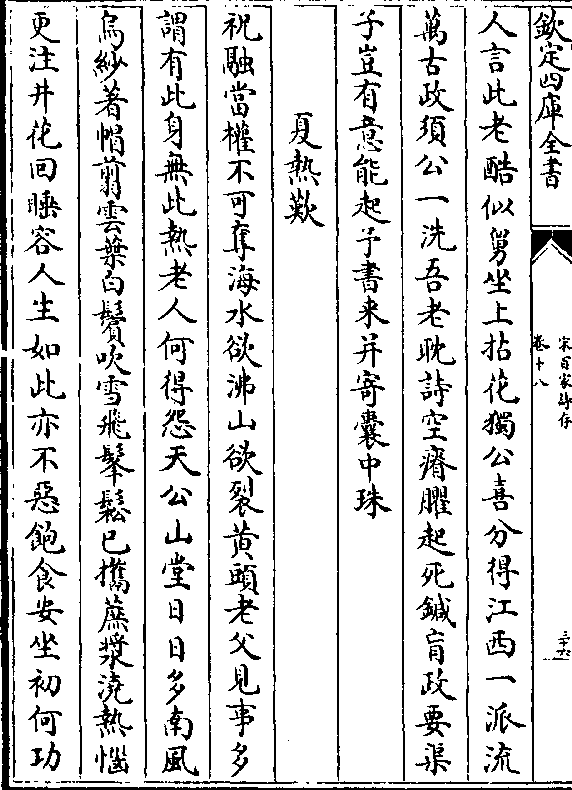 欽定四庫全書
宋百家詩存
卷十八
三十六
人言此老酷似舅坐上拈花獨公喜分得江西一派流
萬古政須公一洗吾老耽詩空瘠臞起死鍼肓政要渠
子豈有意能起予書来并寄囊中珠
夏熱歎
祝融當權不可奪海水欲沸山欲裂黄頭老父見事多
謂有此身無此熱老人何得怨天公山堂日日多南風
烏紗著帽翦雲葉白鬚吹雪飛髼鬆已攜蔗漿澆熱惱
更注井花回睡容人生如此亦不惡飽食安坐初何功